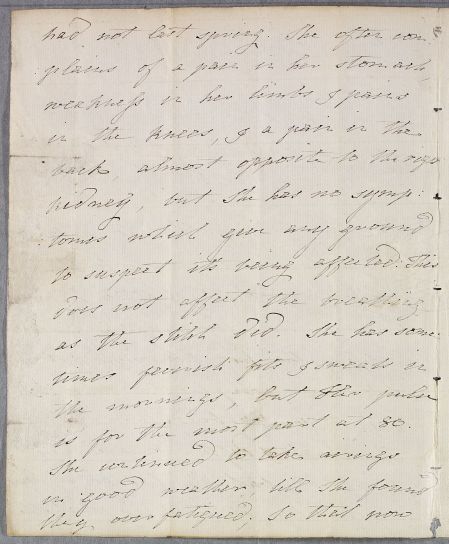 had not last spring. She often com
plains of a pain in her stomach,
weakness in her limbs & pains
in the knees, & a pain in the
back, almost opposite to the
kidney, but she has no symp:
toms which give any ground
to suspect its being affected. This
does not affect the breathing
as the stitch did. She has some
times feverish fits & sweats in
the mornings, but her pulse
is for the most part at 80.
She continued to take airings
in good weather, till she found
they over fatigued, so that now